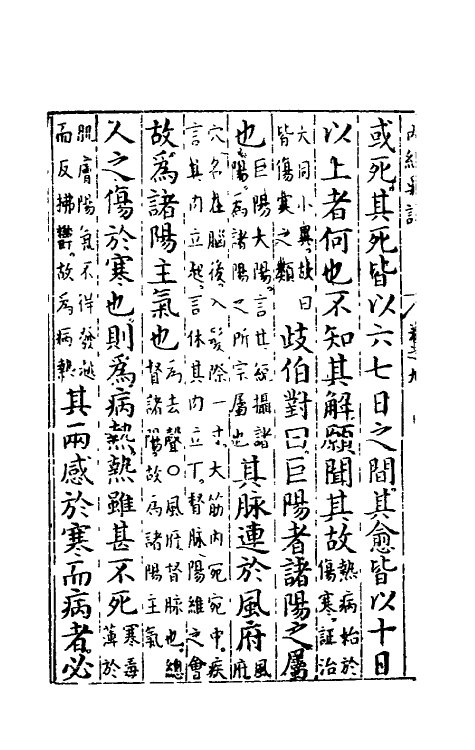 或死其死皆以六七日之間其愈皆以十日
以上者何也不知其解願聞其故熱病始於傷寒証治
大同小異故曰皆傷寒之類岐伯對曰巨陽者諸陽之屬
也巨陽太陽言其經攝諸陽為諸陽之所宗屬也其脉連於風府風府
穴名在腦後入髮際一寸大筋內宛宛中疾言其肉立起言休其肉立下督脉陽維之會
故爲諸陽主氣也為去聲○風府督脉也總督諸陽故為諸陽主氣
人之傷於寒也則爲病熱熱雖甚不死寒毒薄於
肌膚陽氣不得發越而反拂鬱故為病熱其兩感於寒而病者必